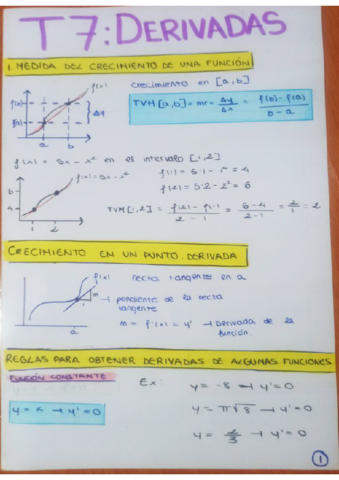 T7: DERIVADAS
1. MEDIDA DEL CRECIMIENTO DE UNA FUNCIÓN
crecimiento en [a,b]
f(x)
f(b)
f(a)
Δy
a b
TVM [a,b] = m = Δy/Δx = f(b) - f(a) / b - a
f(x) = 5x - x² en el intervalo [1,2]
f(x) = 5x - x²
f(1) = 5·1 - 1² = 4
f(2) = 5·2 - 2² = 6
6
4
1 2
TVM [1,2] = f(2) - f(1) / 2 - 1 = 6 - 4 / 2 - 1 = 2/1 = 2
CRECIMIENTO EN UN PUNTO. DERIVADA
f(x)
recta tangente en a
m
→ pendiente de la recta tangente
a
m = f'(x) = y' → Derivada de la función
REGLAS PARA OBTENER DERIVADAS DE ALGUNAS FUNCIONES
FUNCIÓN CONSTANTE
Ex:
y = -8 → y' = 0
y = k → y' = 0
y = π√8 → y' = 0
y = 2/3 → y' = 0
1